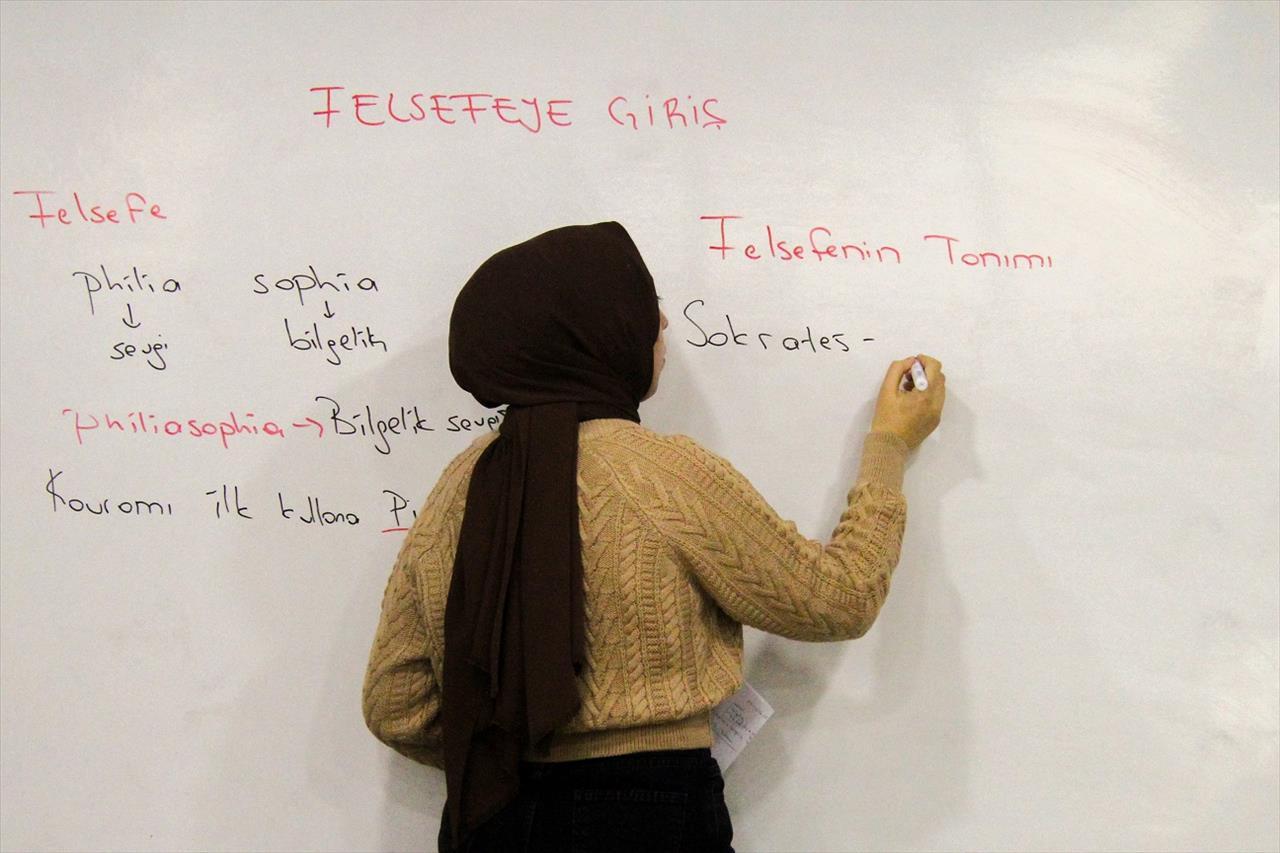 FELSEFEYE GİRİŞ
Felsefe
philia sophia
↓ ↓
sevgi bilgelik
philiasophia → Bilgelik sevgi
Kavramı ilk kullana Pi
Felsefenin Tanımı
Sokrates -